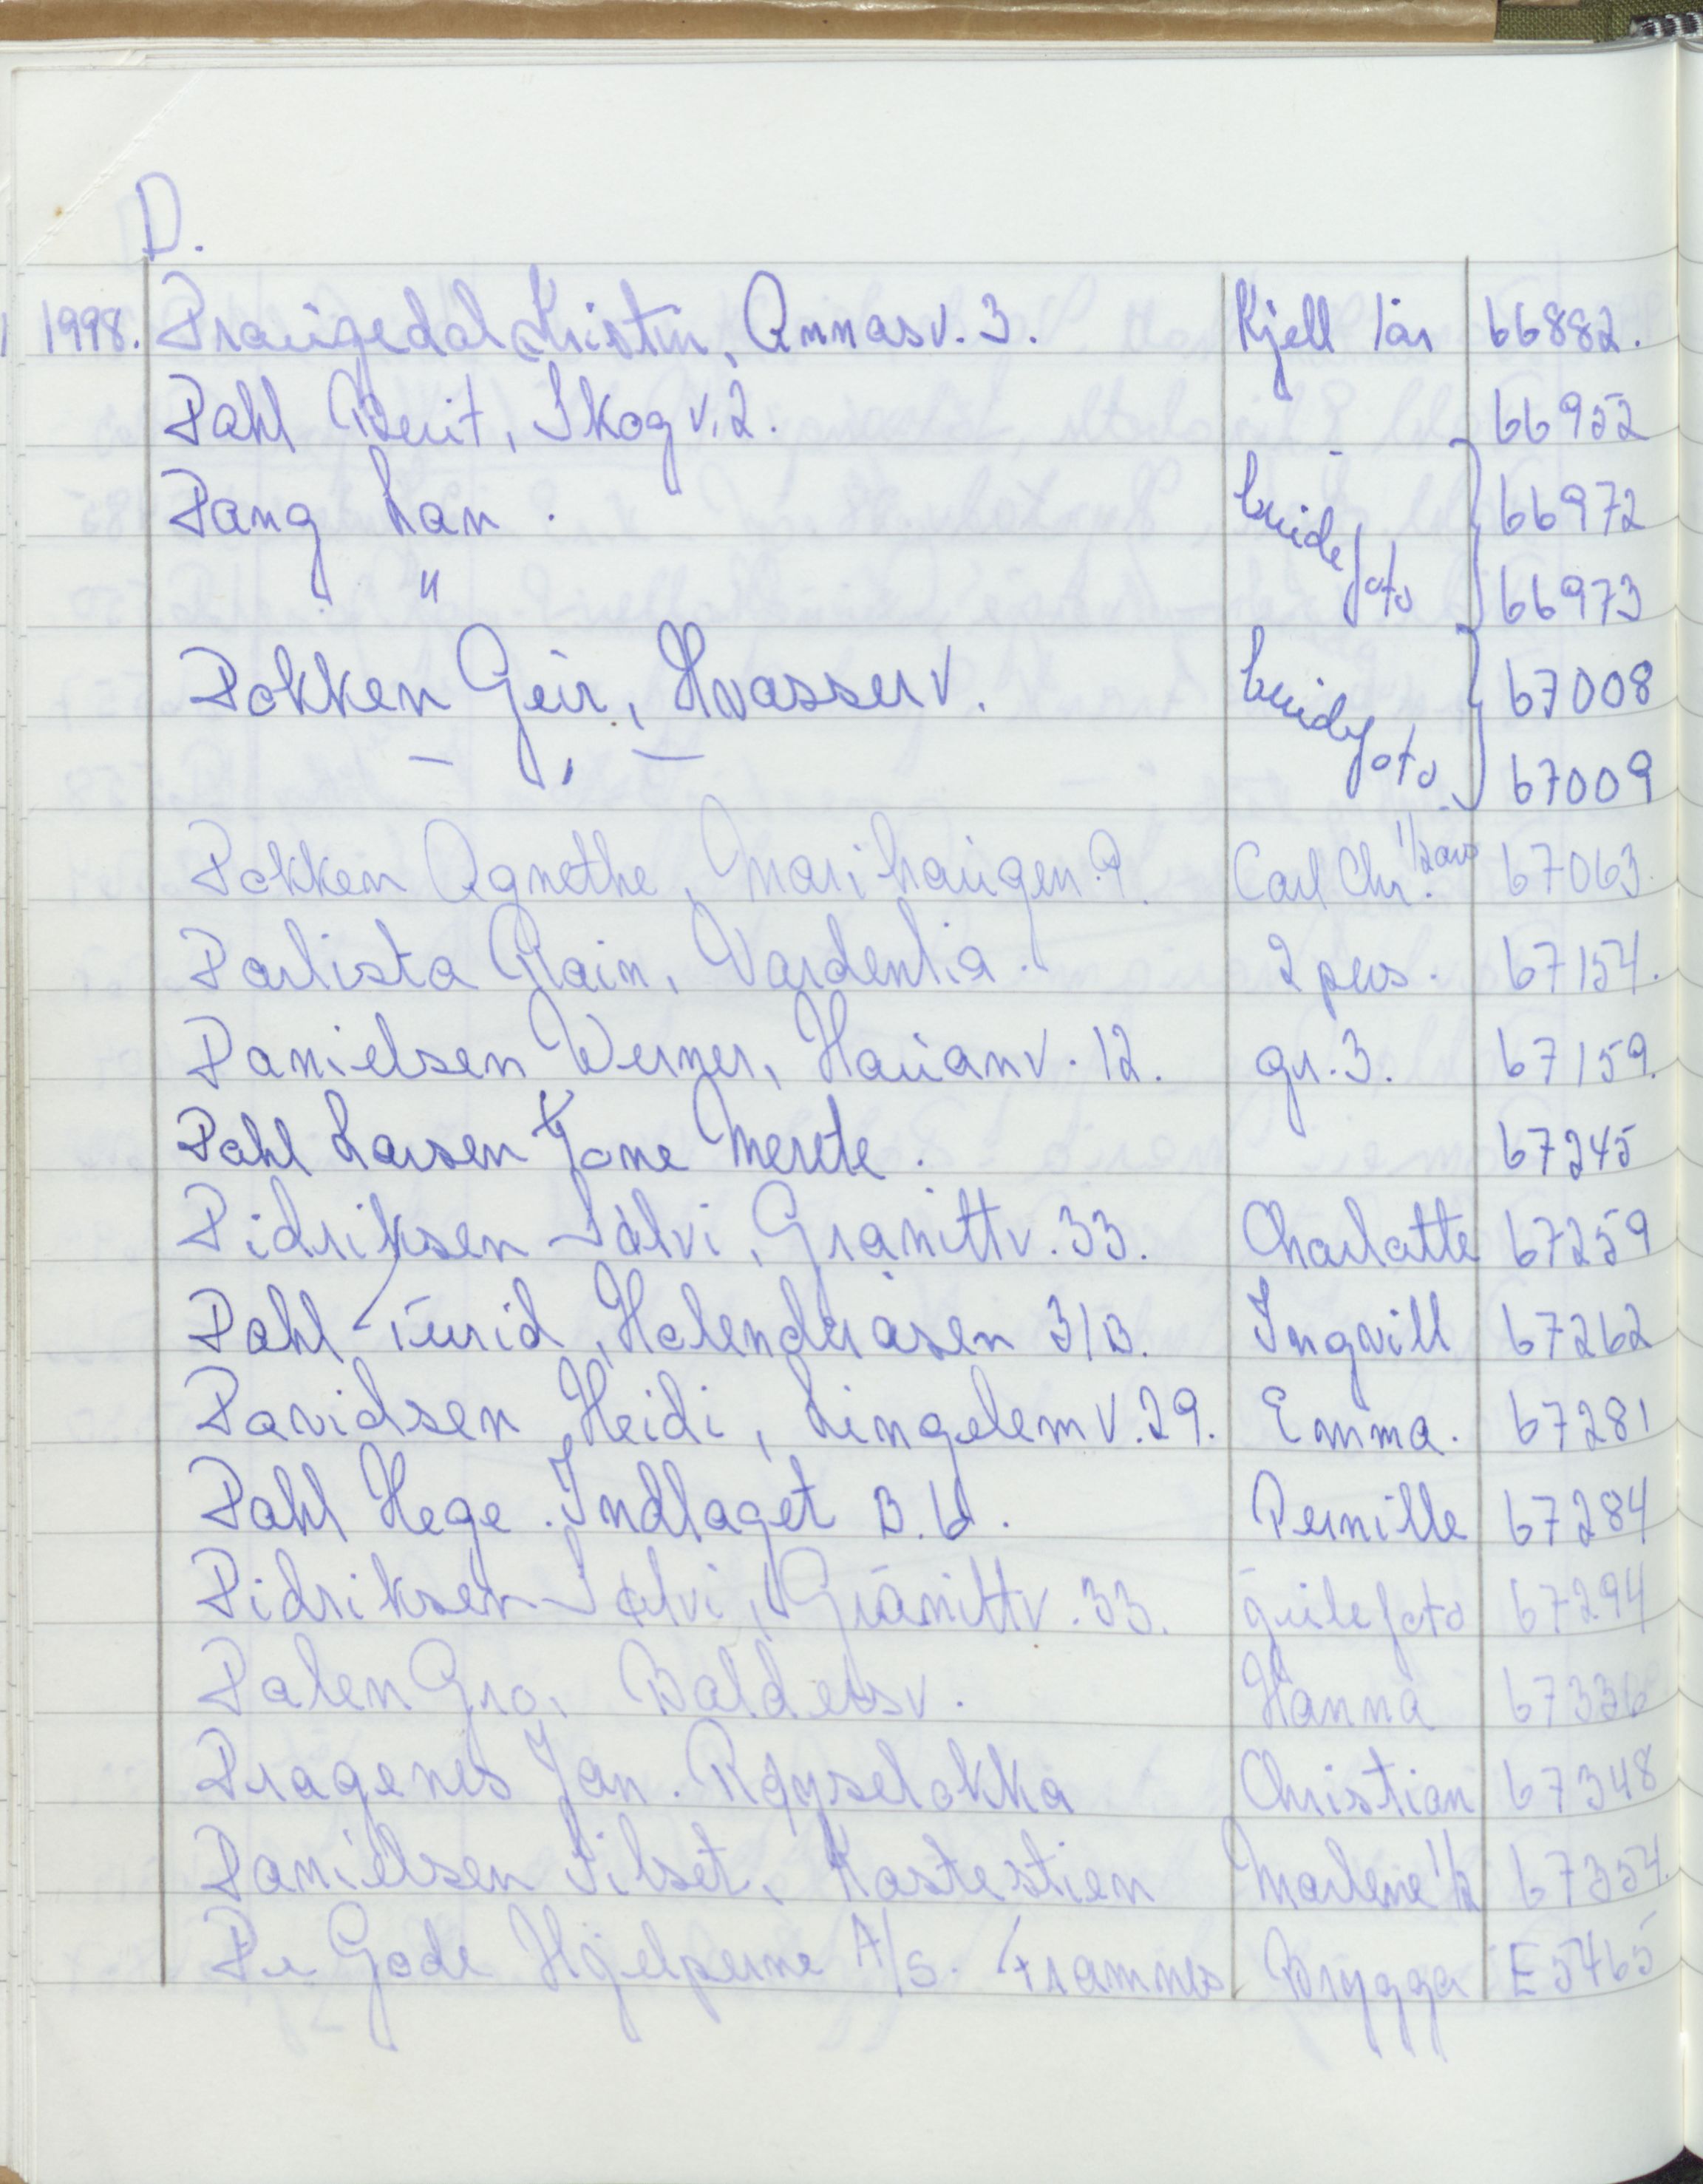 D.
1998. Draugedal Kristin, Annasv. 3. Kjell 1år 66882.
Dahl Berit, Skogv. 2. 66952
Dang Lan. brude foto 66972
" 66973
Dokken Geir, Hvasserv. brudefoto 67008
— , — 67009
Dokken Agnethe, Marihaugen 9. Carl Chr. 67063.
Darlista Grain, Vardenlia. 2 pers. 67154.
Danielsen Werner, Hauanv. 12. gr. 3. 67159.
Dahl Larsen Tone Merete. 67245
Didriksen Sølvi, Granittv. 33. Charlotte 67259
Dahl Turid, Holenderåsen 31B. Ingvill 67262
Davidsen Heidi, Lingelemv. 29. Emma. 67281
Dahl Hege. Indlaget B. 6. Pernille 67284
Didriksen Sølvi, Granittv. 33. gullefoto 67294
Dalen Gro, Baldersv. Hanna 67336
Dragenes Jan. Røyseløkka Christian 67348
Danielsen Filset, Kostestien Marlene 1/2 67354.
De Gode Hjelperne A/S. Framnes Brygga E5465